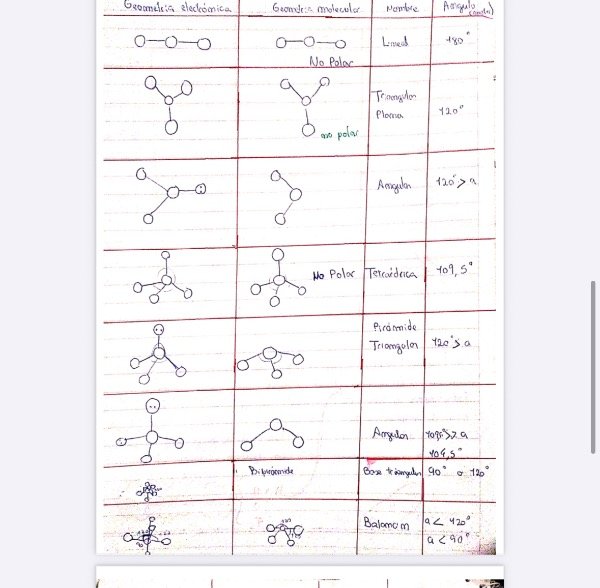 Geometría electrónica Geometría molecular Nombre Ángulo
Lineal 180°
No Polar
Triangular
Plana 120°
no polar
Angular 120° > a
No Polar Tetraédrica 109,5°
Pirámide
Triangular 120° > a
Angular
104,5°
Bipirámide Base triangular 90° o 120°
Balancín a < 120°
a < 90°